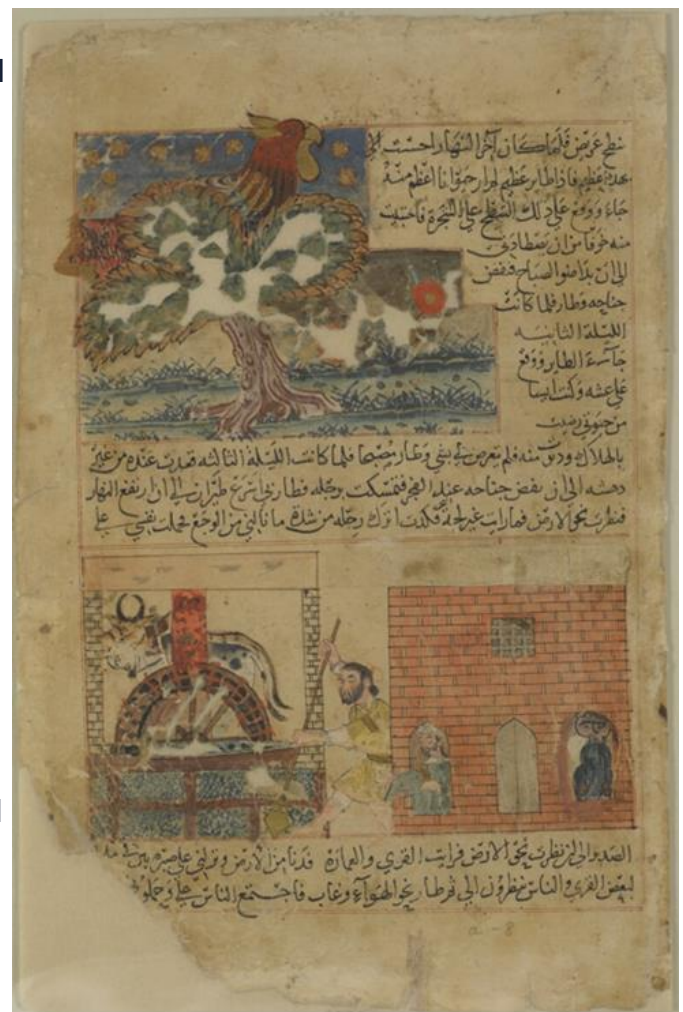 سطح عريض فلما كان آخر النهار احسست
عظيم فاذا طاير عظيم لم ار حيوانا اعظم منه
جاء ووقع على ذلك السطح على الشجرة فاختبيت
منه خوفا من ان يصطادني
الى ان بدا ضوء الصباح ونفض
جناحه وطار فلما كانت
الليلة الثانيه
جاء الطاير ووقع
على عشه وكنت ايسا
من حيوتي رضيت
بالهلاك ودنوت منه فلم يتعرض لي بشي وطار فلما كانت الليلة الثالثه قعدت عنده من غير
دهشه الى ان نفض جناحه عند الفجر فتمسكت برجله فطار بي اسرع طيران الى ان ارتفع النهار
فنظرت نحو الارض فما رايت غير لجة فكدت اترك رجله من شدة ما نالني من الوجع فحملت نفسي على
الصبر الى ان نظرت نحو الارض فرايت القرى والعمارة فدنا من الارض وتركني على صبره تبن في
لبعض القرى والناس ينظرون الي ثم طار نحو الهواء وغاب فاجتمع الناس علي وحملوني
a-8